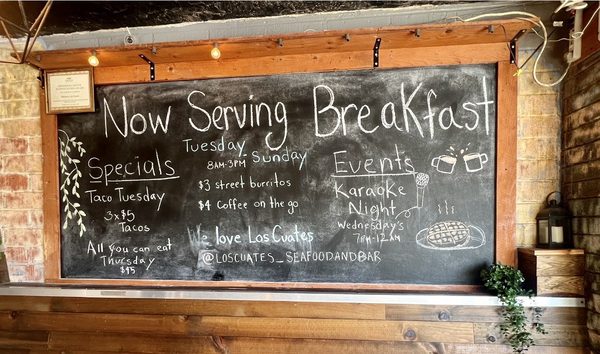 Now Serving Breakfast
Tuesday - Sunday
8AM-3PM
$3 street burritos
$4 Coffee on the go
We love Los Cuates
@LOSCUATES_SEAFOODANDBAR
Specials
Taco Tuesday
3x$5
Tacos
All you can eat
Thursday
$15
Events
Karaoke
Night
Wednesday's
7PM-12AM